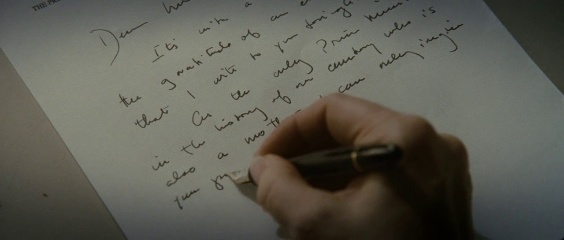 THE PR
Dear
It is with a
the gratitude of an e
that I write to you tonight
As the only Prime Minis
in the history of our country who is
also a mother I can only imagine
your